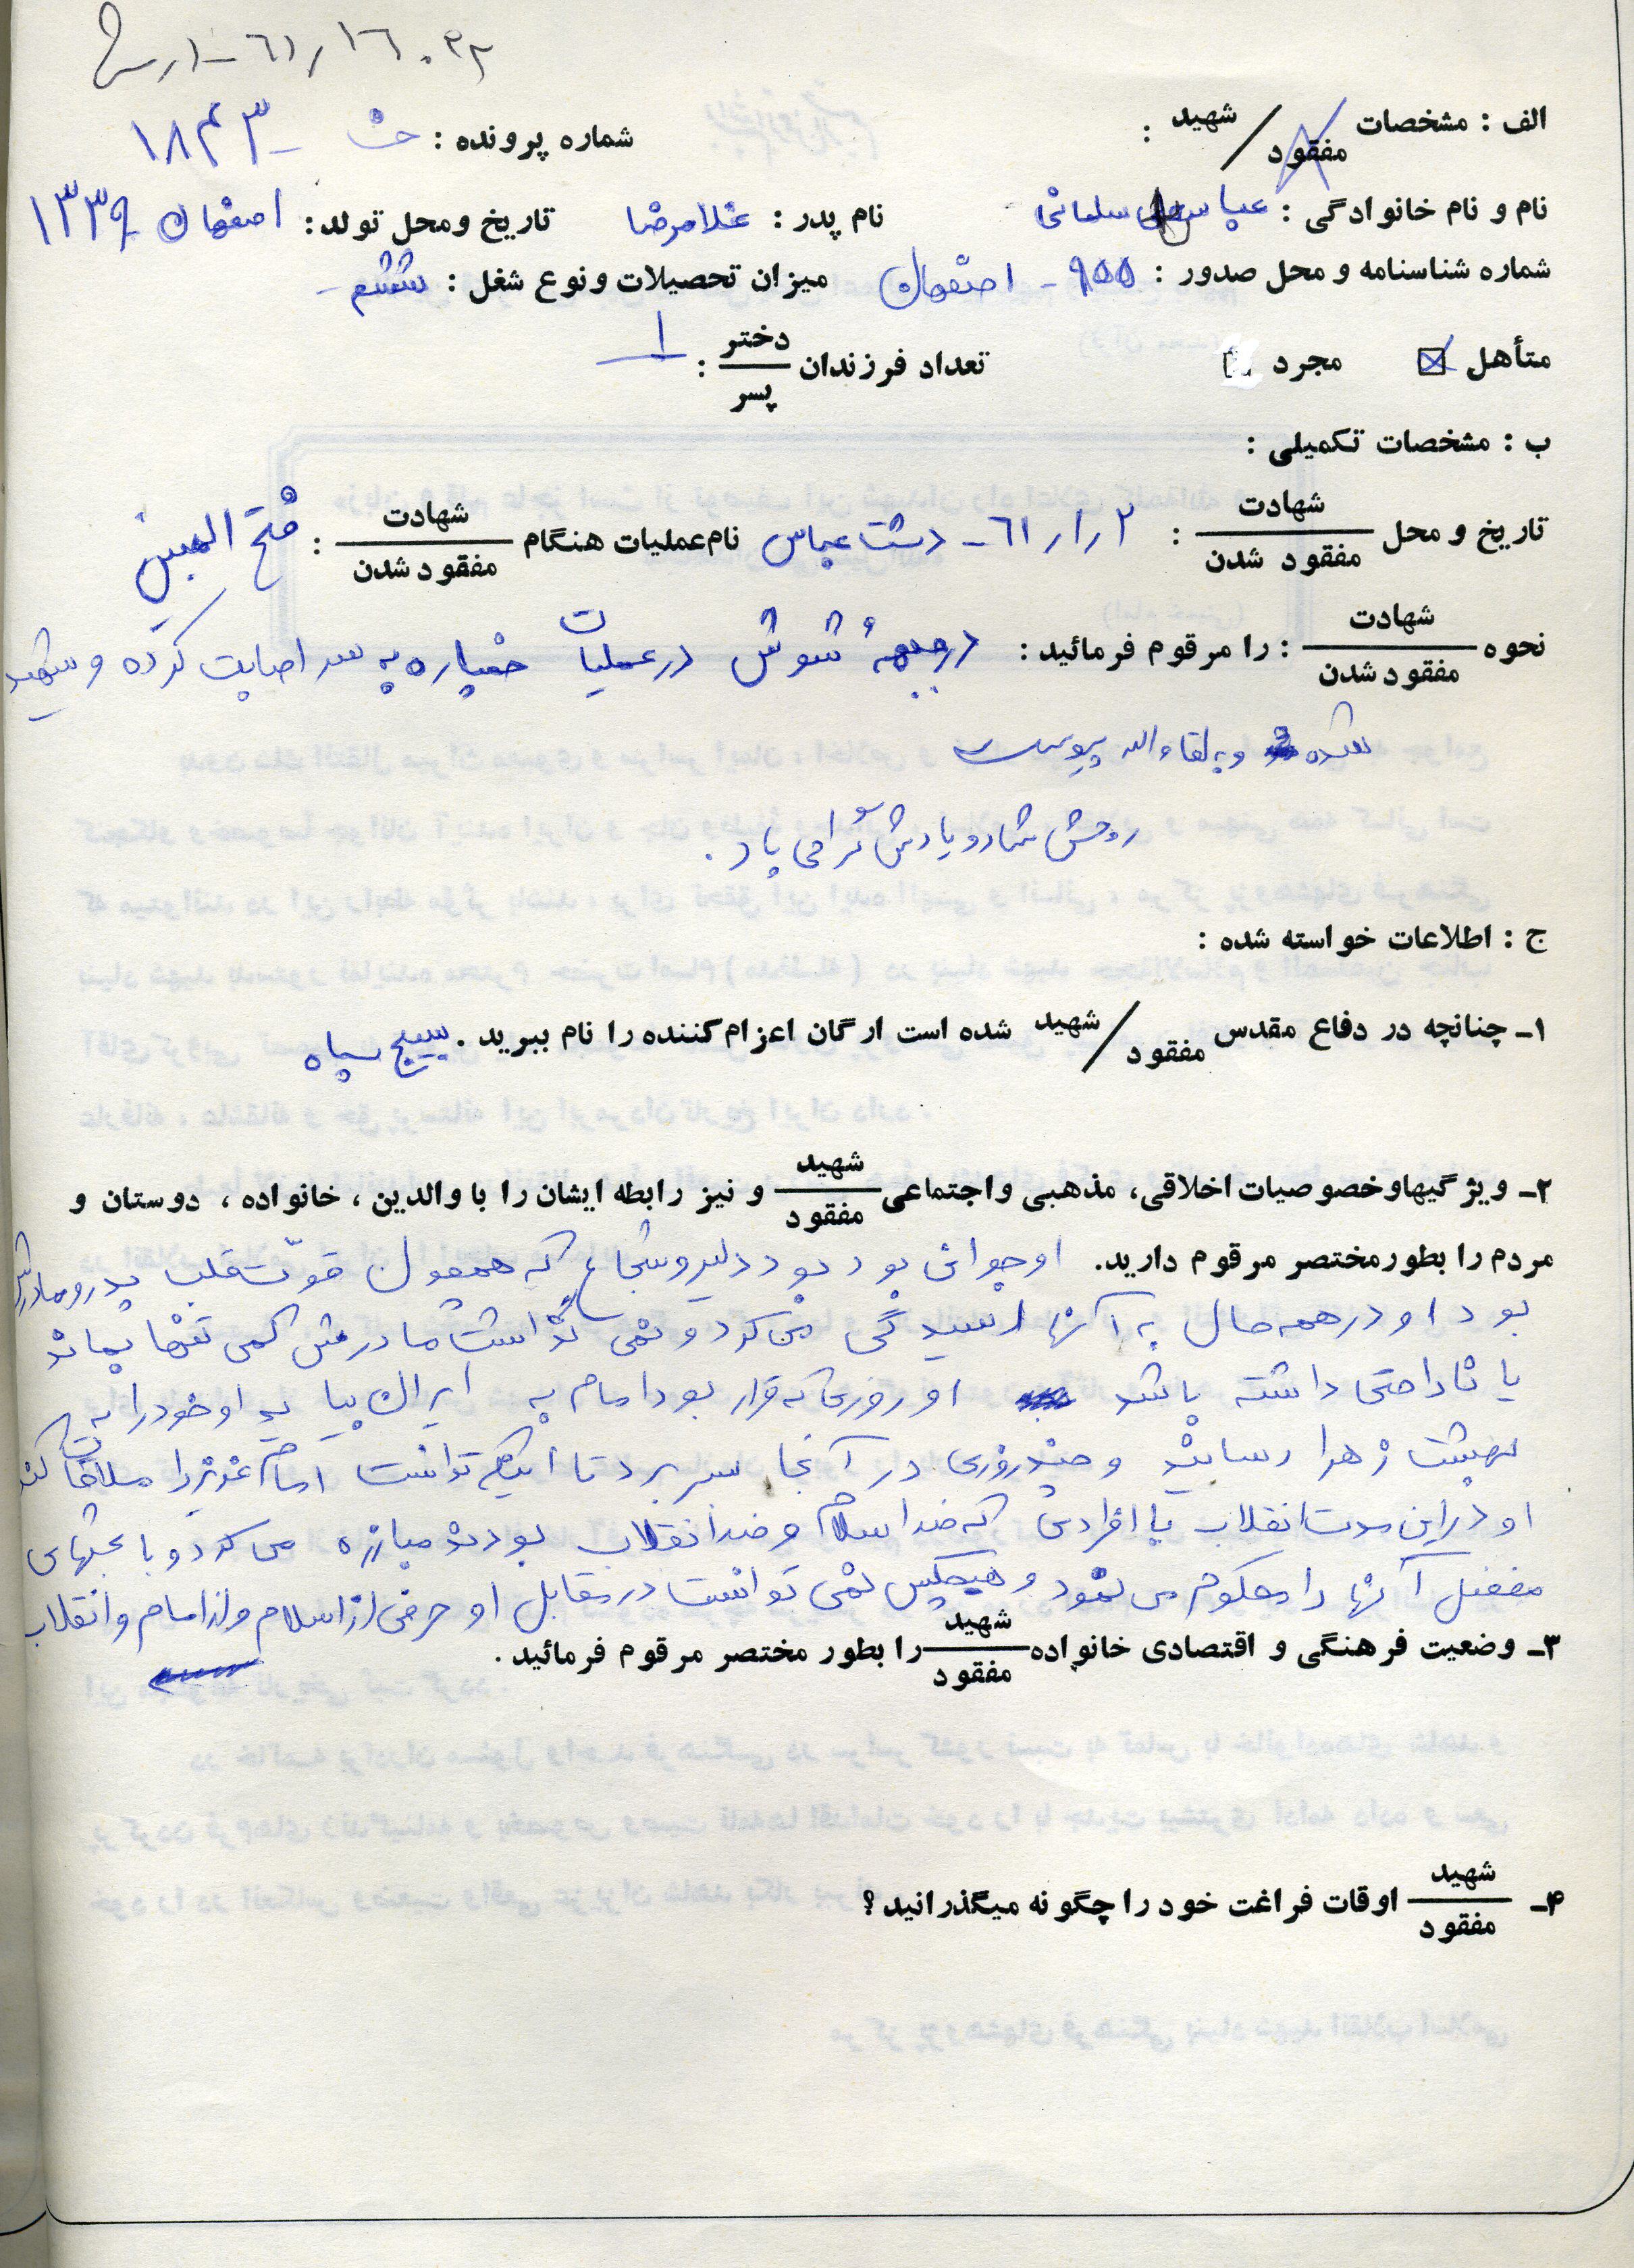 الف : مشخصات شهید / مفقود :
شماره پرونده : ۱۸۴۳ -
نام و نام خانوادگی : عباس سلمانی نام پدر : غلامرضا تاریخ ومحل تولد : اصفهان ۱۳۳۹
شماره شناسنامه و محل صدور : ۹۵۵ - اصفهان میزان تحصیلات ونوع شغل : ششم -
متأهل ☒ مجرد تعداد فرزندان دختر / پسر : ۱
ب : مشخصات تکمیلی :
تاریخ و محل شهادت / مفقود شدن : ۲ر۱ر۶۱ - دشت عباس نام عملیات هنگام شهادت / مفقود شدن : فتح المبین
نحوه شهادت / مفقود شدن : را مرقوم فرمائید : درجبهۀ شوش درعملیات خمپاره به سر اصابت کرده و شهید
شده و به لقاءالله پیوست
روحش شاد و یادش گرامی باد .
ج : اطلاعات خواسته شده :
۱ـ چنانچه در دفاع مقدس شهید / مفقود شده است ارگان اعزام کننده را نام ببرید . بسیج سپاه
۲ـ ویژگیهاوخصوصیات اخلاقی، مذهبی واجتماعی شهید / مفقود و نیز رابطه ایشان را با والدین ، خانواده ، دوستان و
مردم را بطورمختصر مرقوم دارید. او جوانی بود بود دلیر و شجاع که همچون قوّت قلب پدر و مادرش
بود او در همه حال به آنها رسیدگی می کرد و نمی گذاشت مادرش کمی تنها بماند
یا ناراحتی داشته باشد او روزی که قرار بود امام به ایران بیاید او خود را به
بهشت زهرا رسانید و چند روزی در آنجا سر برد تا اینکه توانست امام عزیز را ملاقات کند
او در این مدت انقلاب با افرادی که ضد اسلام و ضد انقلاب بودند مبارزه می کرد و با بحثهای
مفصل آنها را محکوم می نمود و هیچکس نمی توانست در مقابل او حرفی از اسلام و از امام و انقلاب
۳ـ وضعیت فرهنگی و اقتصادی خانواده شهید / مفقود را بطور مختصر مرقوم فرمائید .
۴ـ شهید / مفقود اوقات فراغت خود را چگونه میگذرانید ؟